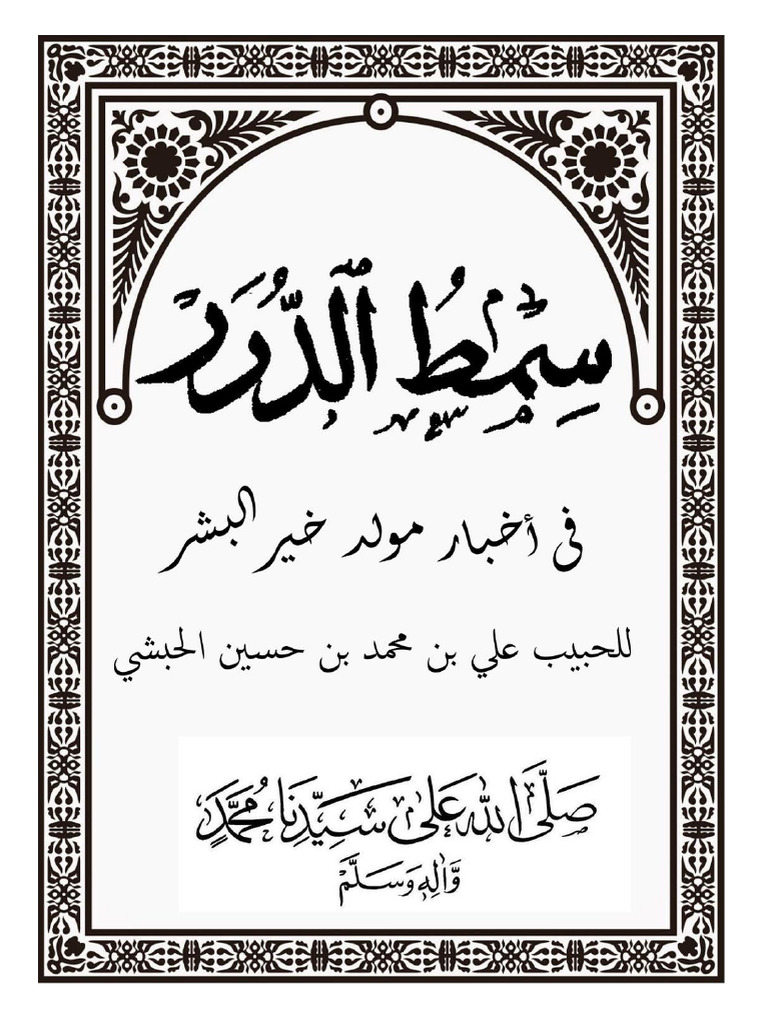 سِمْطُ الدُّرَرْ
في أخبار مولد خير البشر
للحبيب علي بن محمد بن حسين الحبشي
صَلَّى اللهُ عَلىٰ سَيِّدِنَا مُحَمَّدٍ
وَّاٰلِهٖ وَسَلَّمْ